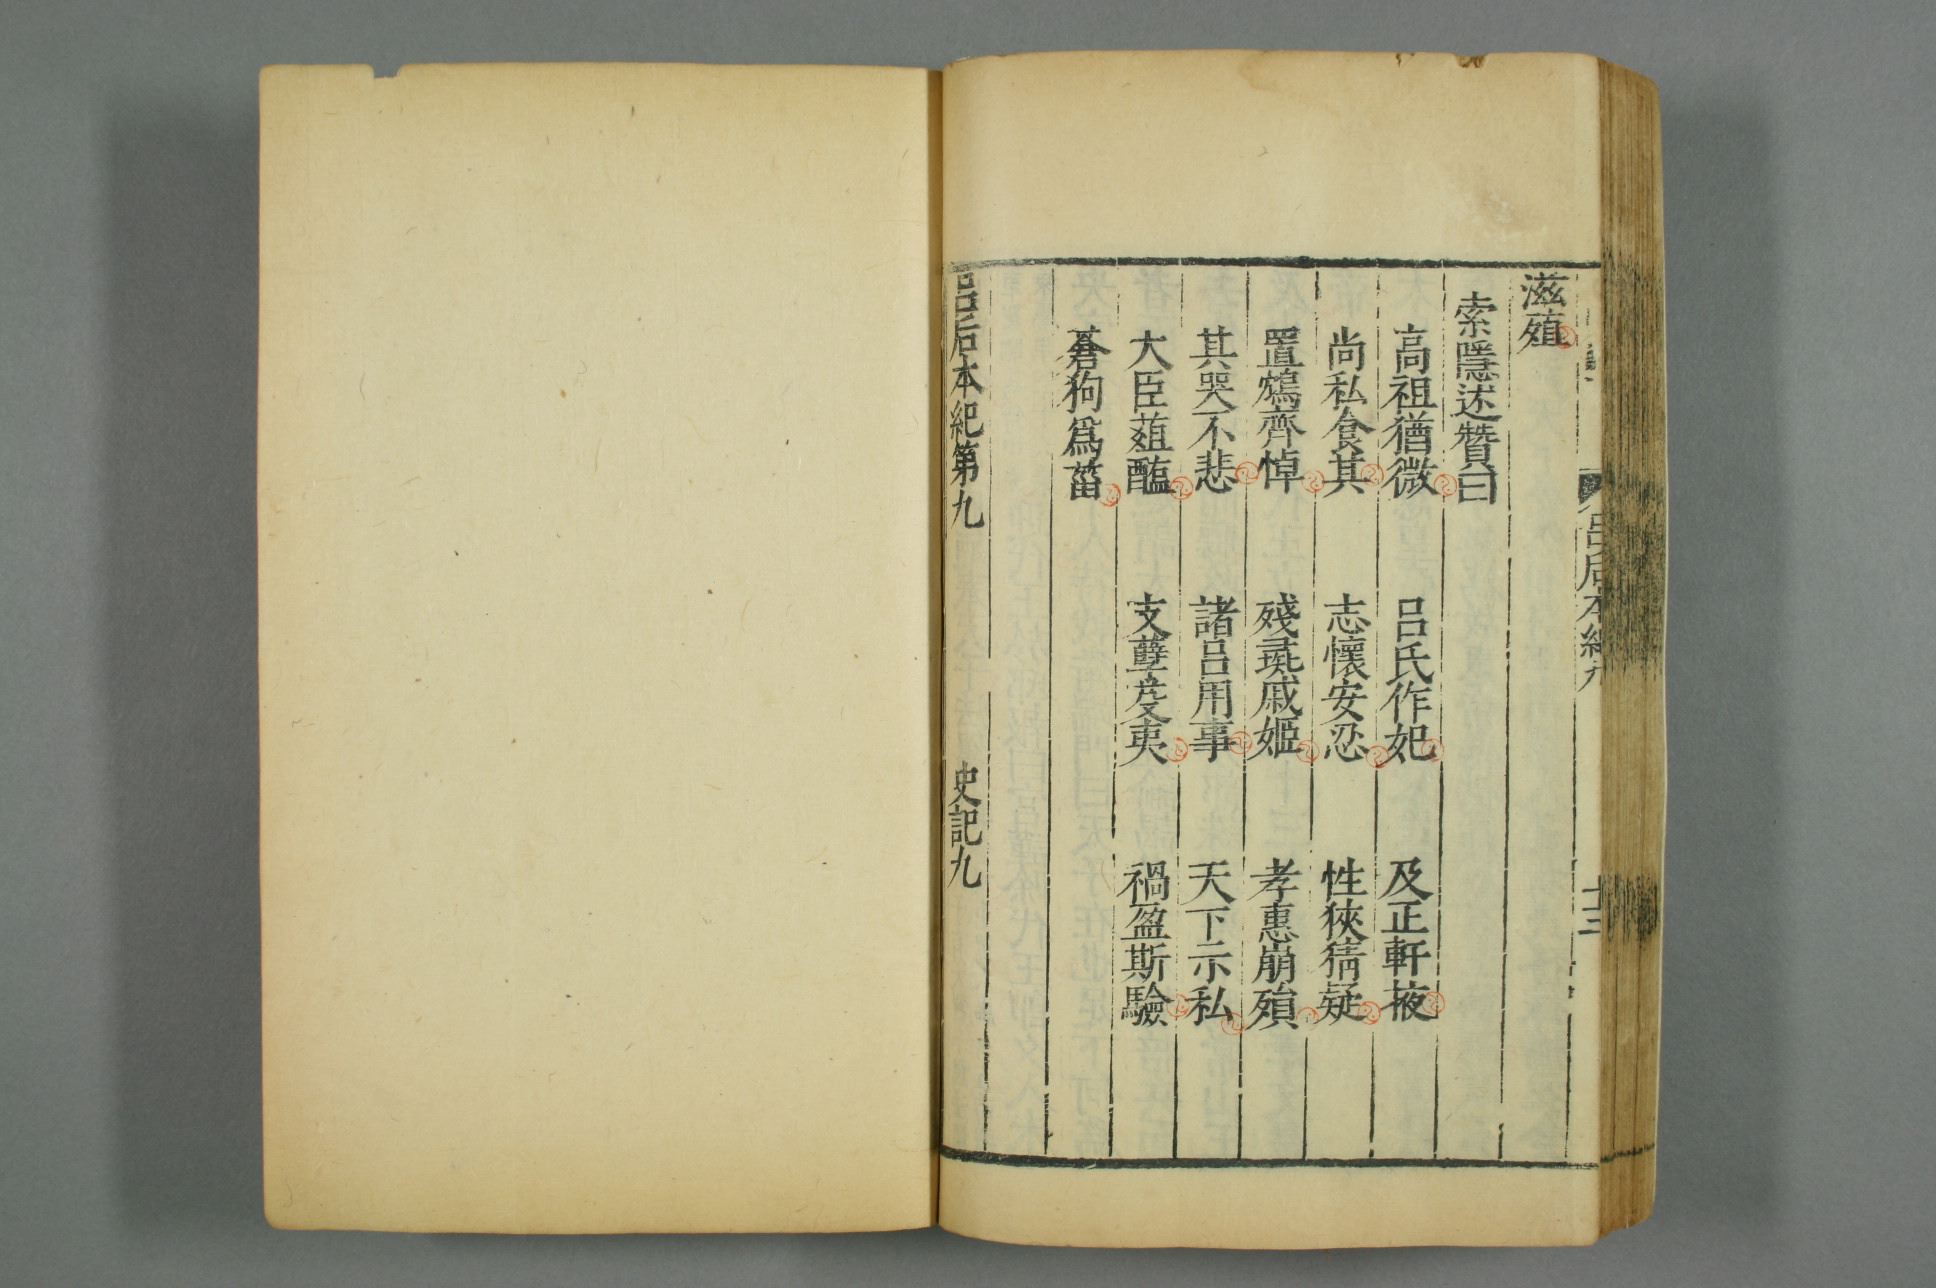 滋殖
索隱述贊曰
高祖猶微　呂氏作妃　及正軒掖
尚私食其　志懷安忍　性狹猜疑
置鴆齊悼　殘彘戚姬　孝惠崩殞
其哭不悲　諸呂用事　天下示私
大臣葅醢　支孽芟夷　禍盈斯驗
蒼狗爲菑
呂后本紀第九　史記九
呂后本紀九
十三